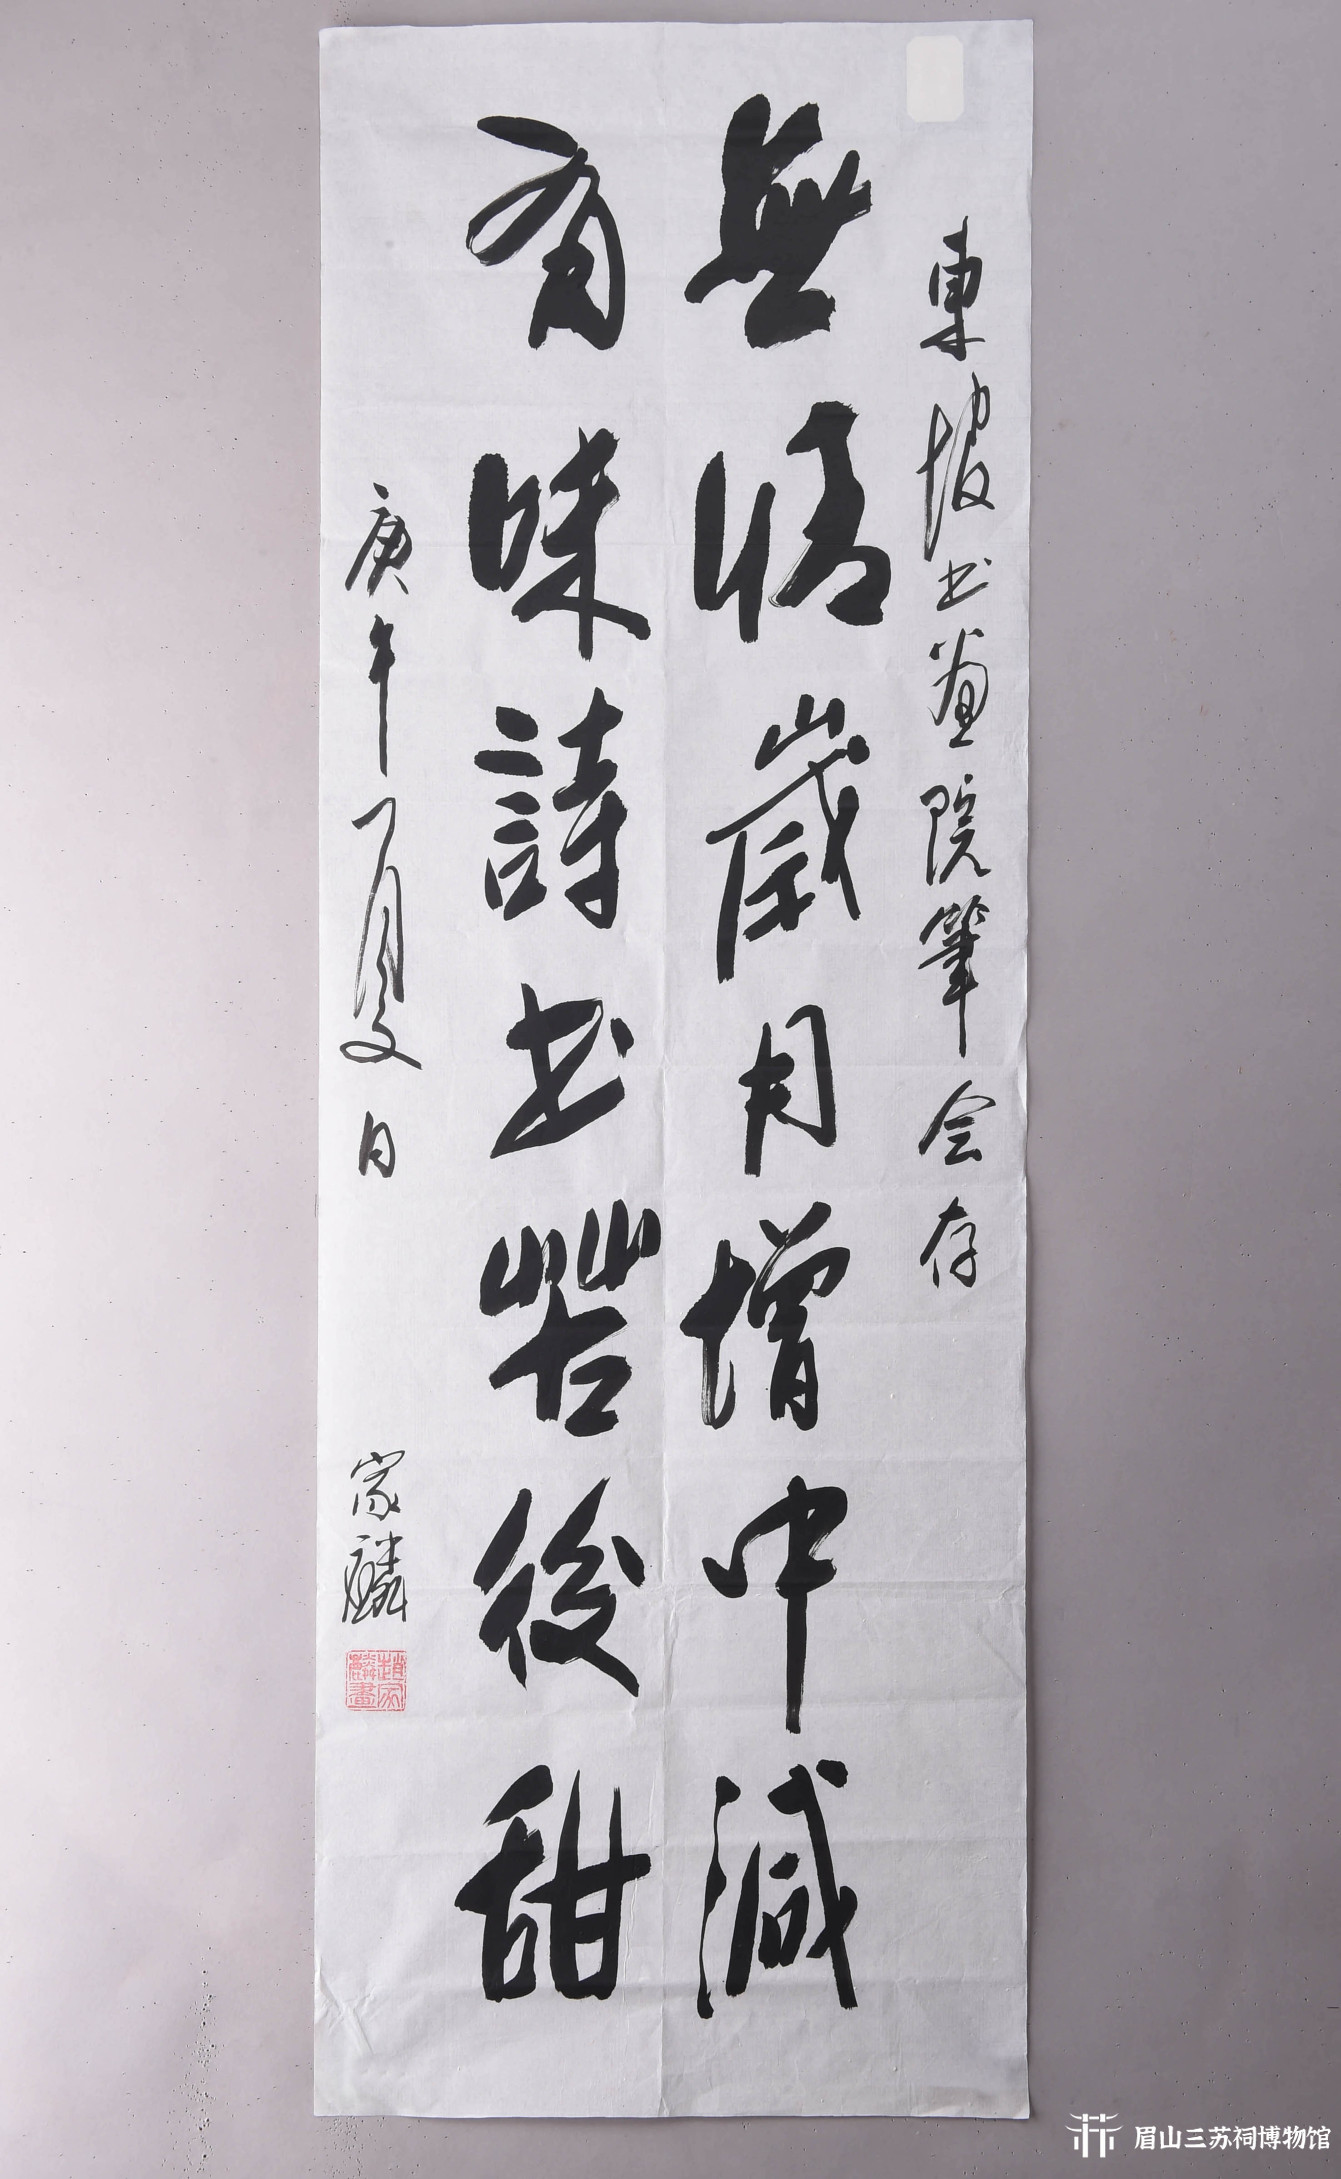 東坡书画院筆会存
無情歲月增中減
有味詩书苦後甜
庚午夏日
家麟
趙家麟畫
眉山三苏祠博物馆